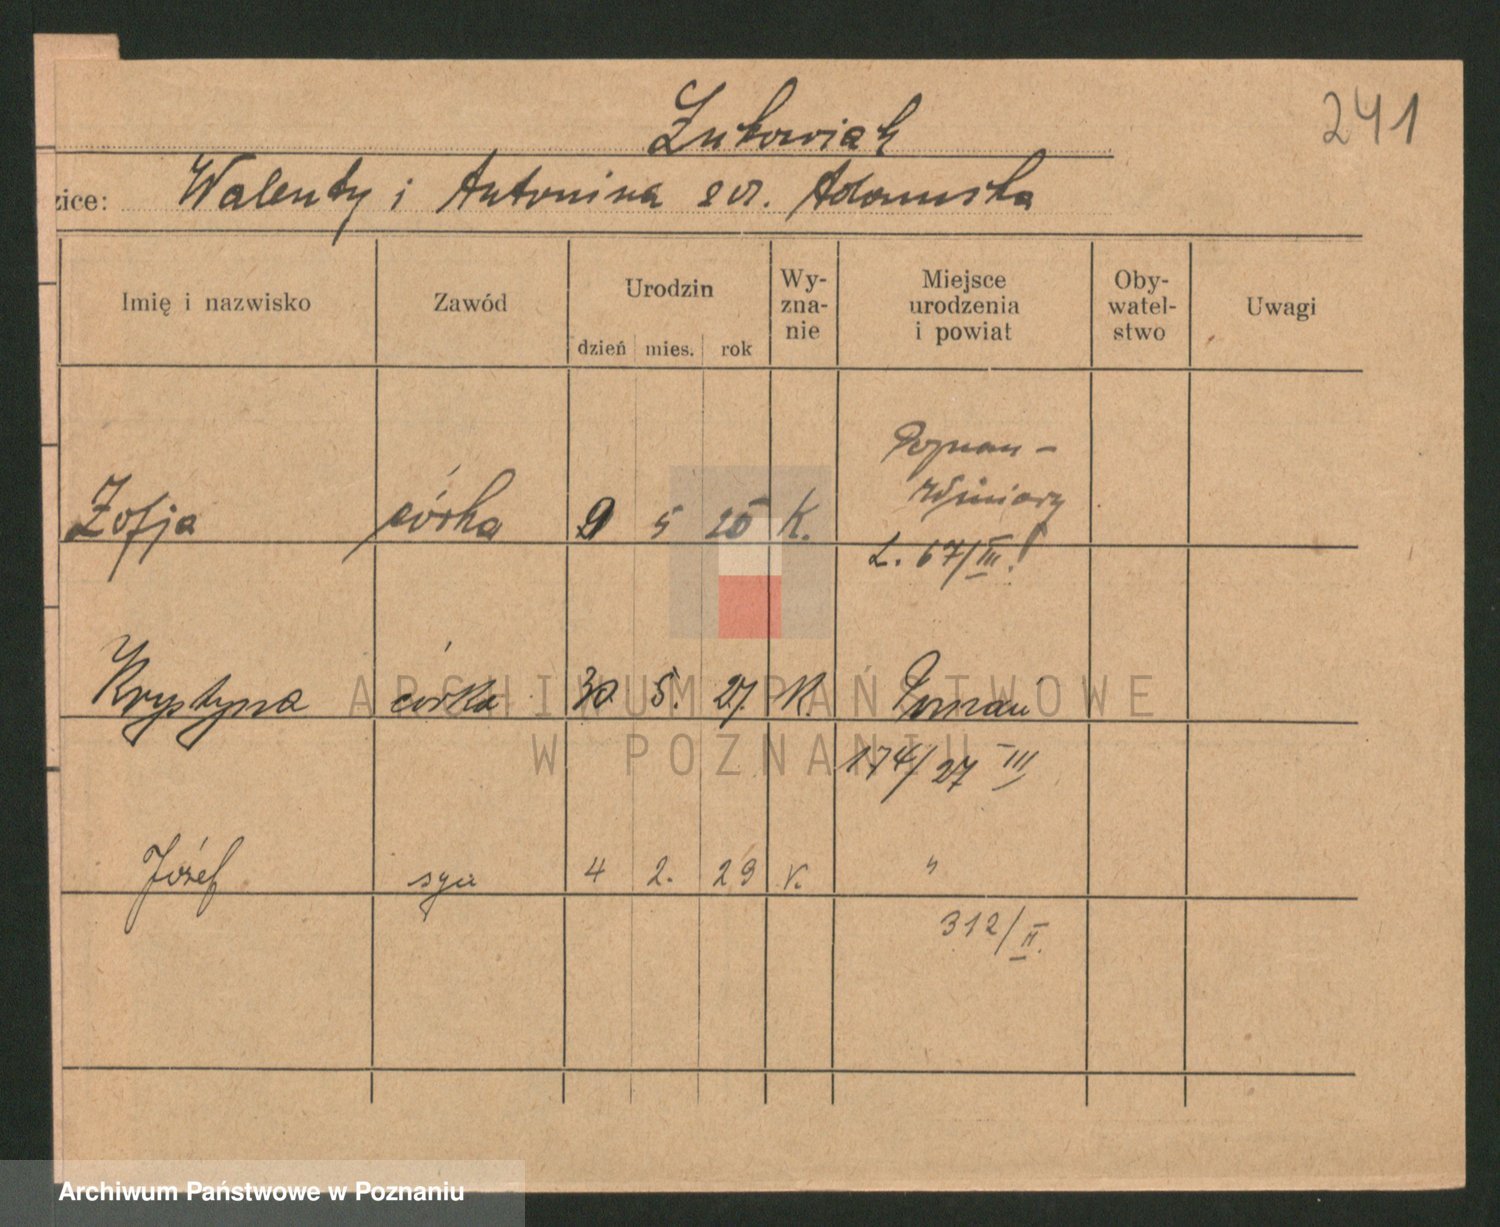 241
Żukowiak
zice: Walenty i Antonina zd. Adamska
Imię i nazwisko
Zawód
Urodzin
dzień mies. rok
Wy-
zna-
nie
Miejsce
urodzenia
i powiat
Oby-
watel-
stwo
Uwagi
Poznań -
Zofja córka 9 5 25 K.
L. 67/III.
Krystyna córka 30. 5. 27. K. Poznań
174/27 III
Józef syn 4 2. 29 K. "
312/II.
ARCHIWUM PAŃSTWOWE
W POZNANIU
Archiwum Państwowe w Poznaniu